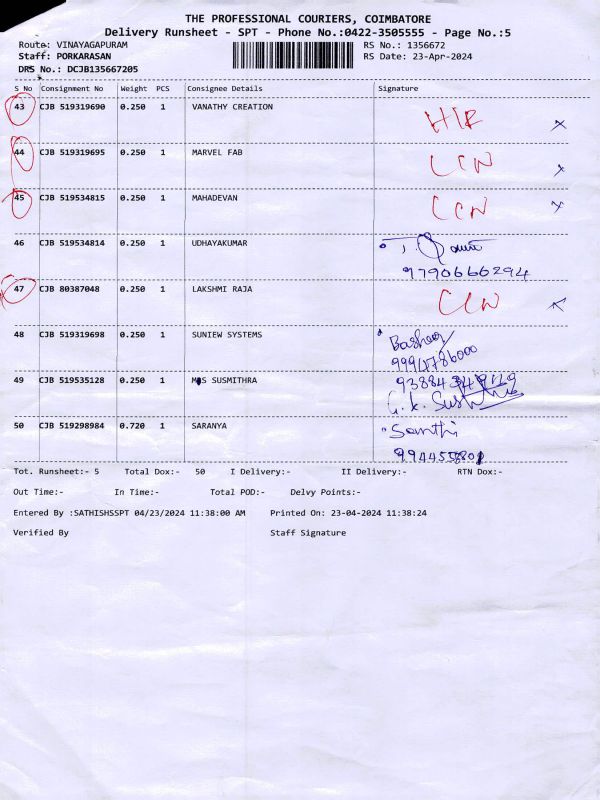 THE PROFESSIONAL COURIERS, COIMBATORE
Delivery Runsheet - SPT - Phone No.:0422-3505555 - Page No.:5
Route: VINAYAGAPURAM RS No.: 1356672
Staff: PORKARASAN RS Date: 23-Apr-2024
DRS No.: DCJB135667205
S No Consignment No Weight PCS Consignee Details Signature
43 CJB 519319690 0.250 1 VANATHY CREATION H/R X
44 CJB 519319695 0.250 1 MARVEL FAB LCN X
45 CJB 519534815 0.250 1 MAHADEVAN LCN X
46 CJB 519534814 0.250 1 UDHAYAKUMAR
9790666294
47 CJB 80387048 0.250 1 LAKSHMI RAJA CCN X
48 CJB 519319698 0.250 1 SUNIEW SYSTEMS
9994786000
49 CJB 519535128 0.250 1 MS SUSMITHRA
50 CJB 519298984 0.720 1 SARANYA Santhi
Tot. Runsheet:- 5 Total Dox:- 50 I Delivery:- II Delivery:- RTN Dox:-
Out Time:- In Time:- Total POD:- Delvy Points:-
Entered By :SATHISHSSPT 04/23/2024 11:38:00 AM Printed On: 23-04-2024 11:38:24
Verified By Staff Signature